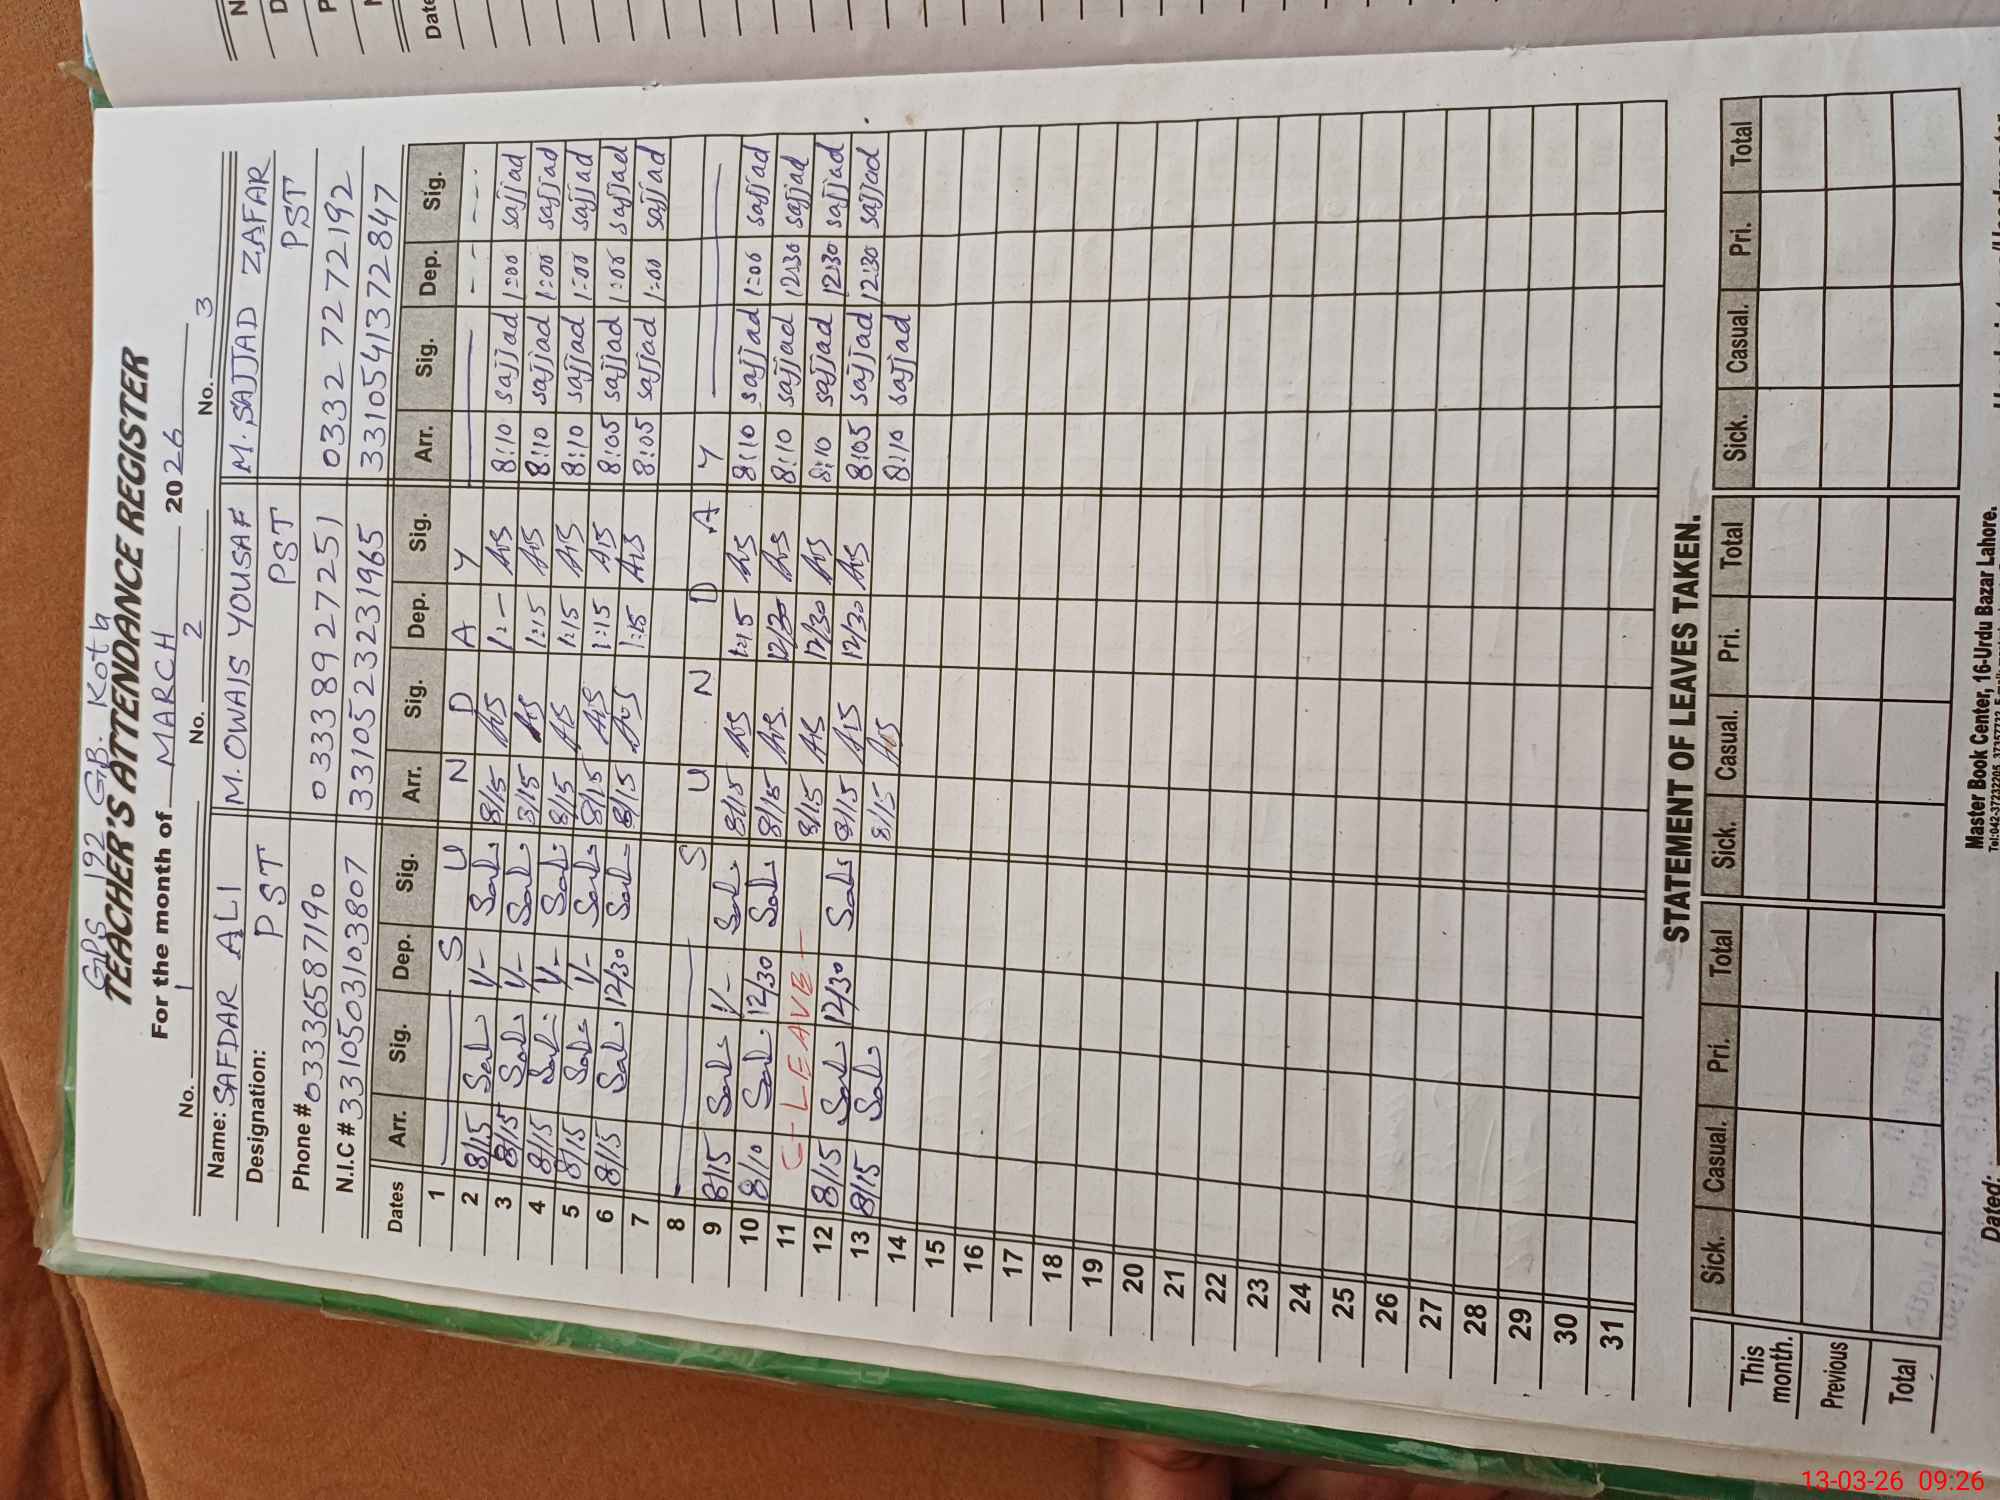 GPS 192 GB. Kot b
TEACHER'S ATTENDANCE REGISTER
For the month of MARCH 2026
No. 1 No. 2 No. 3
Name: SAFDAR ALI M. OWAIS YOUSAF M. SAJJAD ZAFAR
Designation: PST PST PST
Phone # 03336587190 03338927251 0332 7272192
N.I.C # 3310503103807 3310523231965 3310541372847
Dates Arr. Sig. Dep. Sig. Arr. Sig. Dep. Sig. Arr. Sig. Dep. Sig.
1 S U N D A Y
2 8/15 1/- 8/15 1:- 8:10 sajjad 1:00 sajjad
3 8/15 1/- 8/15 1:15 8:10 sajjad 1:00 sajjad
4 8/15 1/- 8/15 1:15 8:10 sajjad 1:00 sajjad
5 8/15 1/- 8/15 1:15 8:05 sajjad 1:00 sajjad
6 8/15 12/30 8/15 1:15 8:05 sajjad 1:00 sajjad
7
8 S U N D A Y
9 8/15 1/- 8/15 1:15 8:10 sajjad 1:00 sajjad
10 8/10 12/30 8/15 12/30 8:10 sajjad 12:30 sajjad
11 C-LEAVE- 8/15 12/30 8:10 sajjad 12:30 sajjad
12 8/15 12/30 8/15 12/30 8:05 sajjad 12:30 sajjad
13 8/15 8/15 8:10 sajjad
14
15
16
17
18
19
20
21
22
23
24
25
26
27
28
29
30
31
STATEMENT OF LEAVES TAKEN.
Sick. Casual. Pri. Total Sick. Casual. Pri. Total Sick. Casual. Pri. Total
This month.
Previous
Total
Master Book Center, 16-Urdu Bazar Lahore.
Dated:
13-03-26 09:26